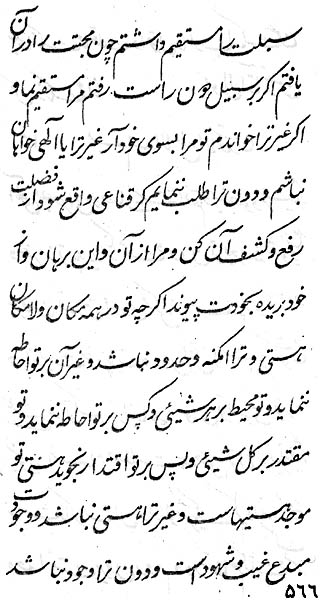 سبیلت را مستقیم داشتم چون محبتت را در آن
یافتم اگر بر سبیل جون راست رفتم مرا مستقیم نما و
اگر غیر ترا خواندم تو مرا بسوی خود آر غیر ترا یا آلهی خواهان
نباشم و دون ترا طلب ننمایم گر قناعی واقع شود از فضلت
رفع و کشف آن کن و مرا از آن و این برهان و از
خود بریده بخودت پیوند اگر چه تو در همه مکان و لامکان
هستی و ترا امکنه و حدود نباشد و غیر آن بر تو احاطه
ننماید و تو محیط بر هر شیئی و کس بر تو احاطه ننماید و تو
مقتدر بر کل شیئی و پس بر تو اقتدار نجوید هستی تو
موجد هستیهاست و غیر ترا هستی نباشد و وجودت
مبدع غیب و شهود است و دون ترا وجود نباشد
۵۶۶